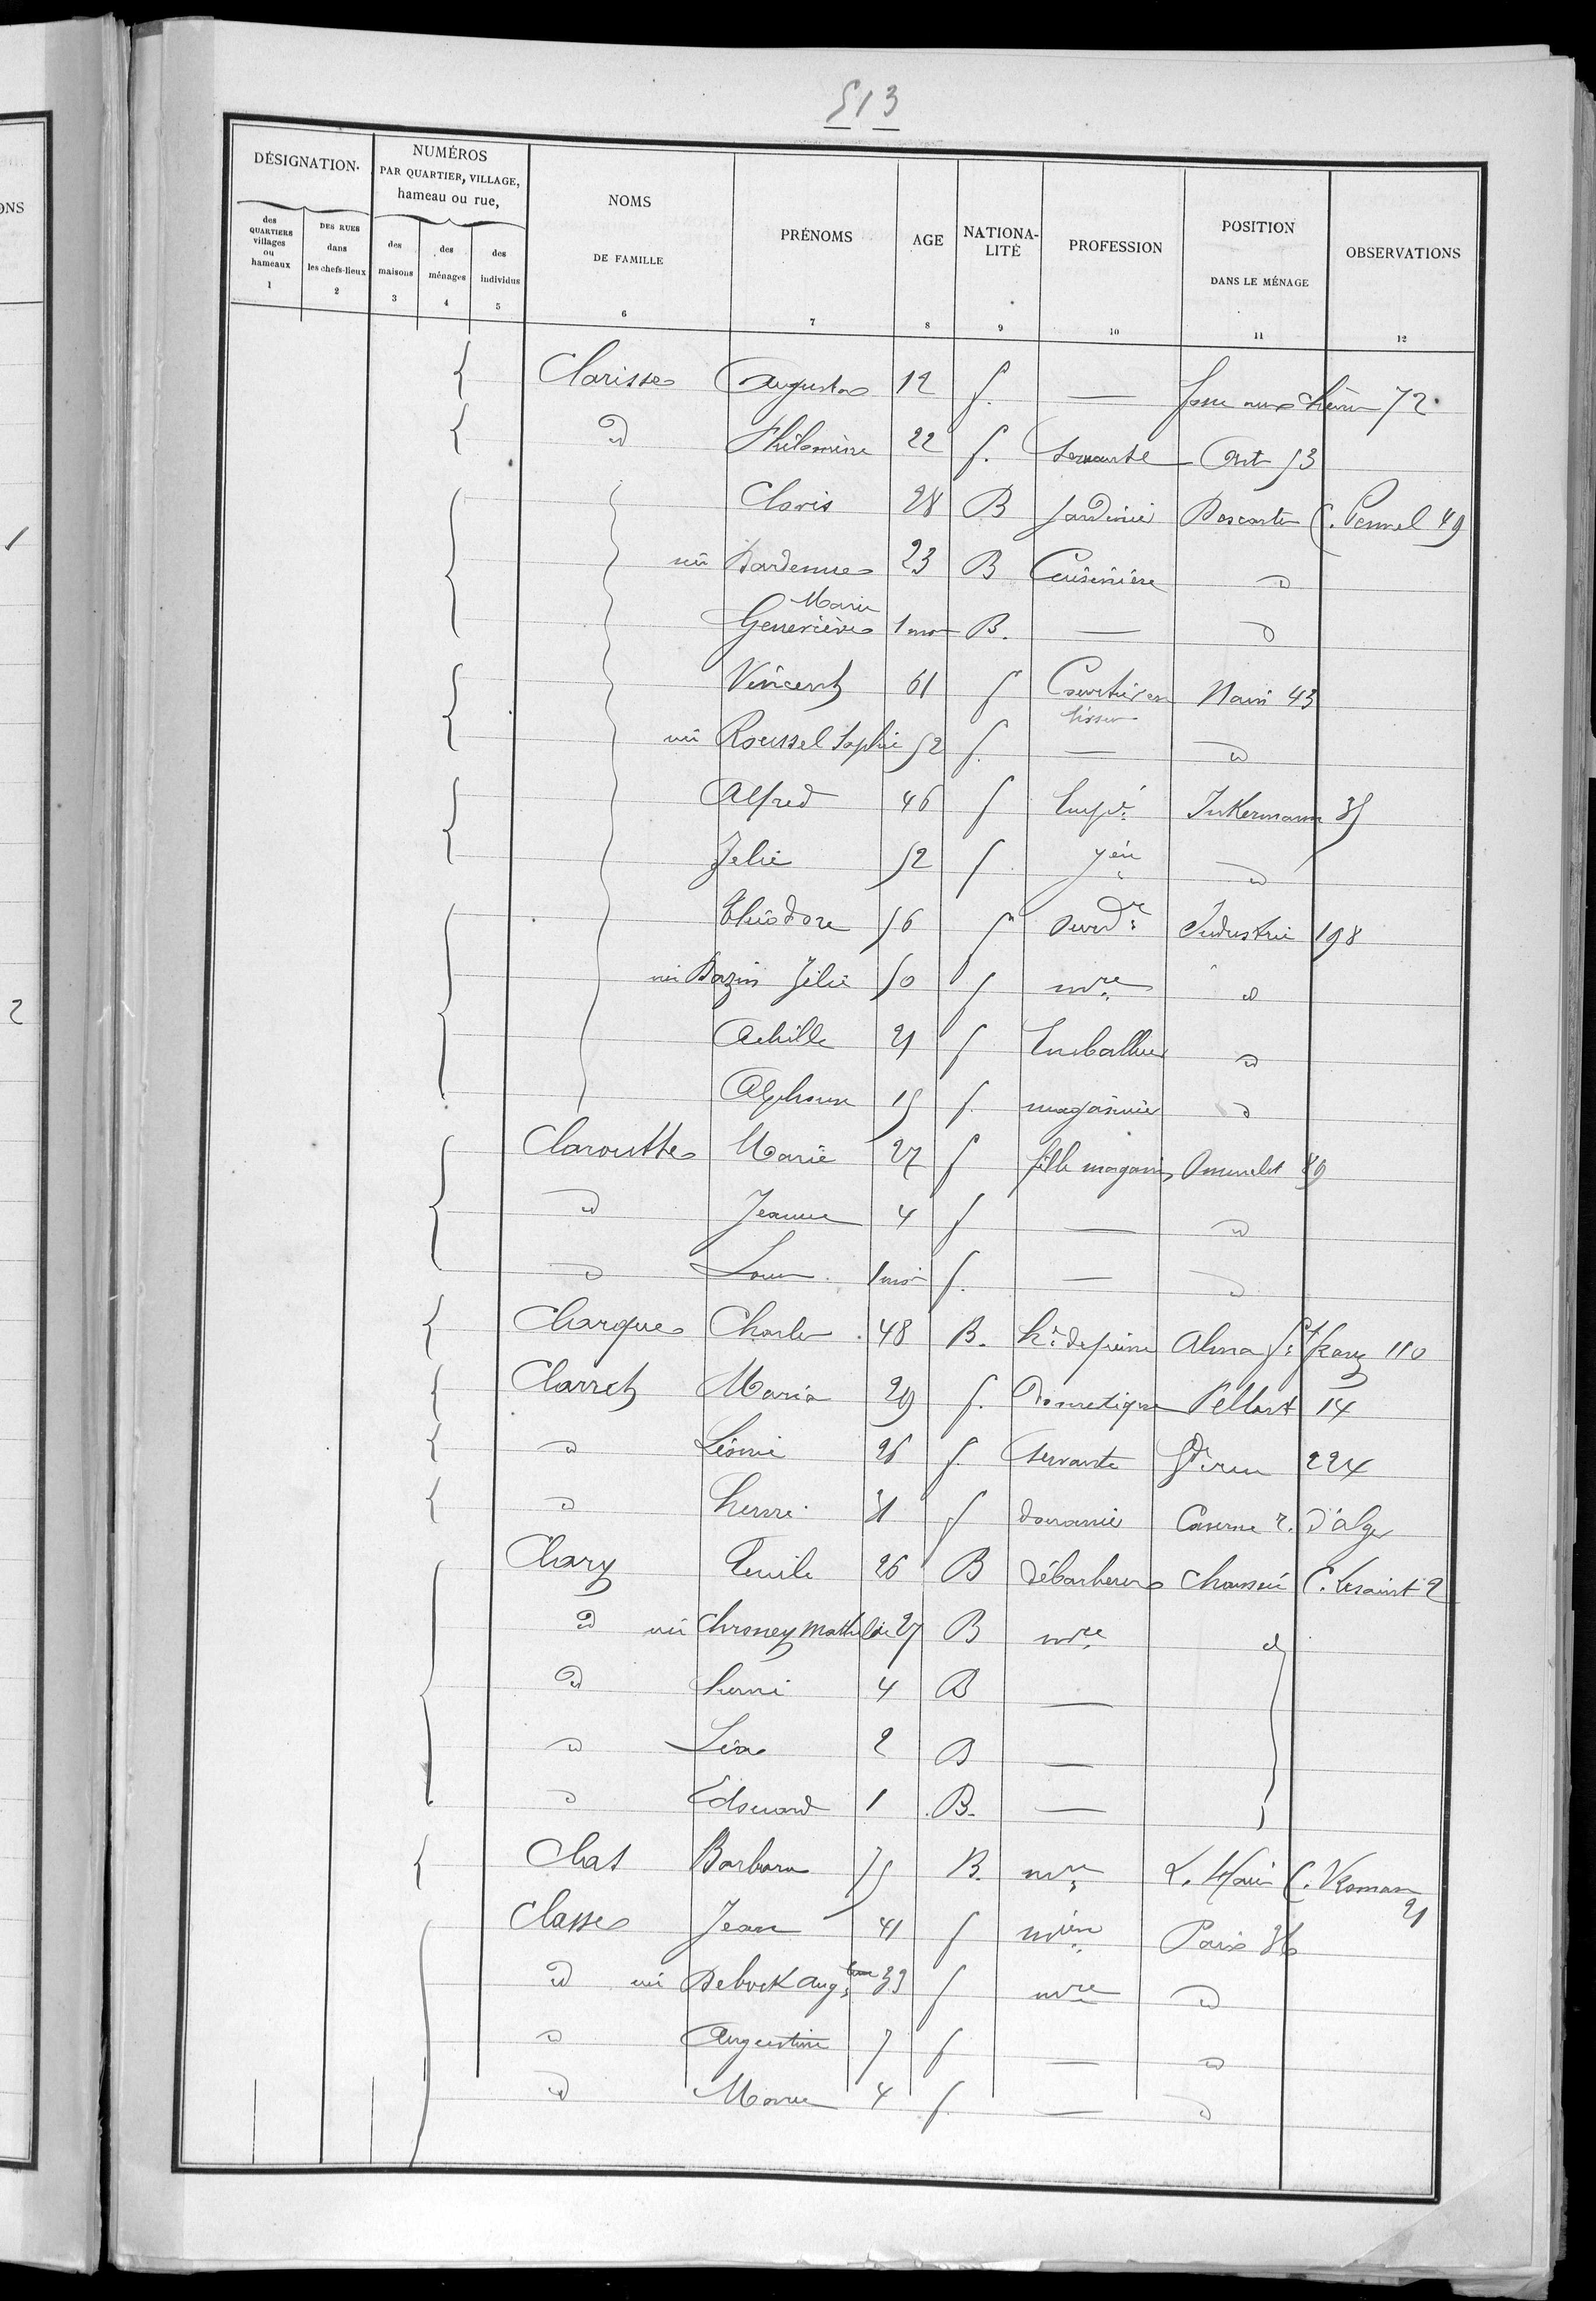 513
DÉSIGNATION.
NUMÉROS
PAR QUARTIER, VILLAGE,
hameau ou rue,
des QUARTIERS villages ou hameaux 1
DES RUES dans les chefs-lieux 2
des maisons 3
des ménages 4
des individus 5
NOMS DE FAMILLE 6
PRÉNOMS 7
AGE 8
NATIONALITÉ 9
PROFESSION 10
POSITION DANS LE MÉNAGE 11
OBSERVATIONS 12
Clarisse Augusta 12 f. — fosse aux chênes 72
d Philomène 22 f. servante Art 53
Clovis 28 B Jardinier Descartes C. Pennel 49
née Dardenne 23 B Cuisinière d
Marie
Geneviève 1 mois B. — d
Vincent 61 f Courtier en Nain 43
tissu
née Roussel Sophie 52 f. — d
Alfred 46 f Empé Inkermann 35
Zélie 52 f d
Théodore 56 f ourd. Industrie 198
née Bazin Zélie 50 f mre d
Achille 21 f Emballeur d
Alphonse 15 f. magasinier d
Clarouttes Marie 27 f fille magasin 89
d Jeanne 4 f — d
d Louis 1 mois f. — d
Clarque Charles 48 B. Alma 110
Clarret Maria 29 f. Domestique Pellart 14
d Léonie 26 f servante Gde rue 224
d henri 31 f douanier Caserne r. d'alger
Clary Emile 26 B Débarbeur Chaussée C. Lesaint 2
d née Chroney Mathilde 27 B mre d
d henri 4 B —
d Léa 2 B —
d Edouard 1 B. —
Clas Barbara 75 B. mre L. Haie C. Vroman
21
Classe Jean 41 f Paix 36
d née Debock Augne 39 f mre d
d Augustine 7 f — d
d Marie 4 f. — d
ONS
1
2